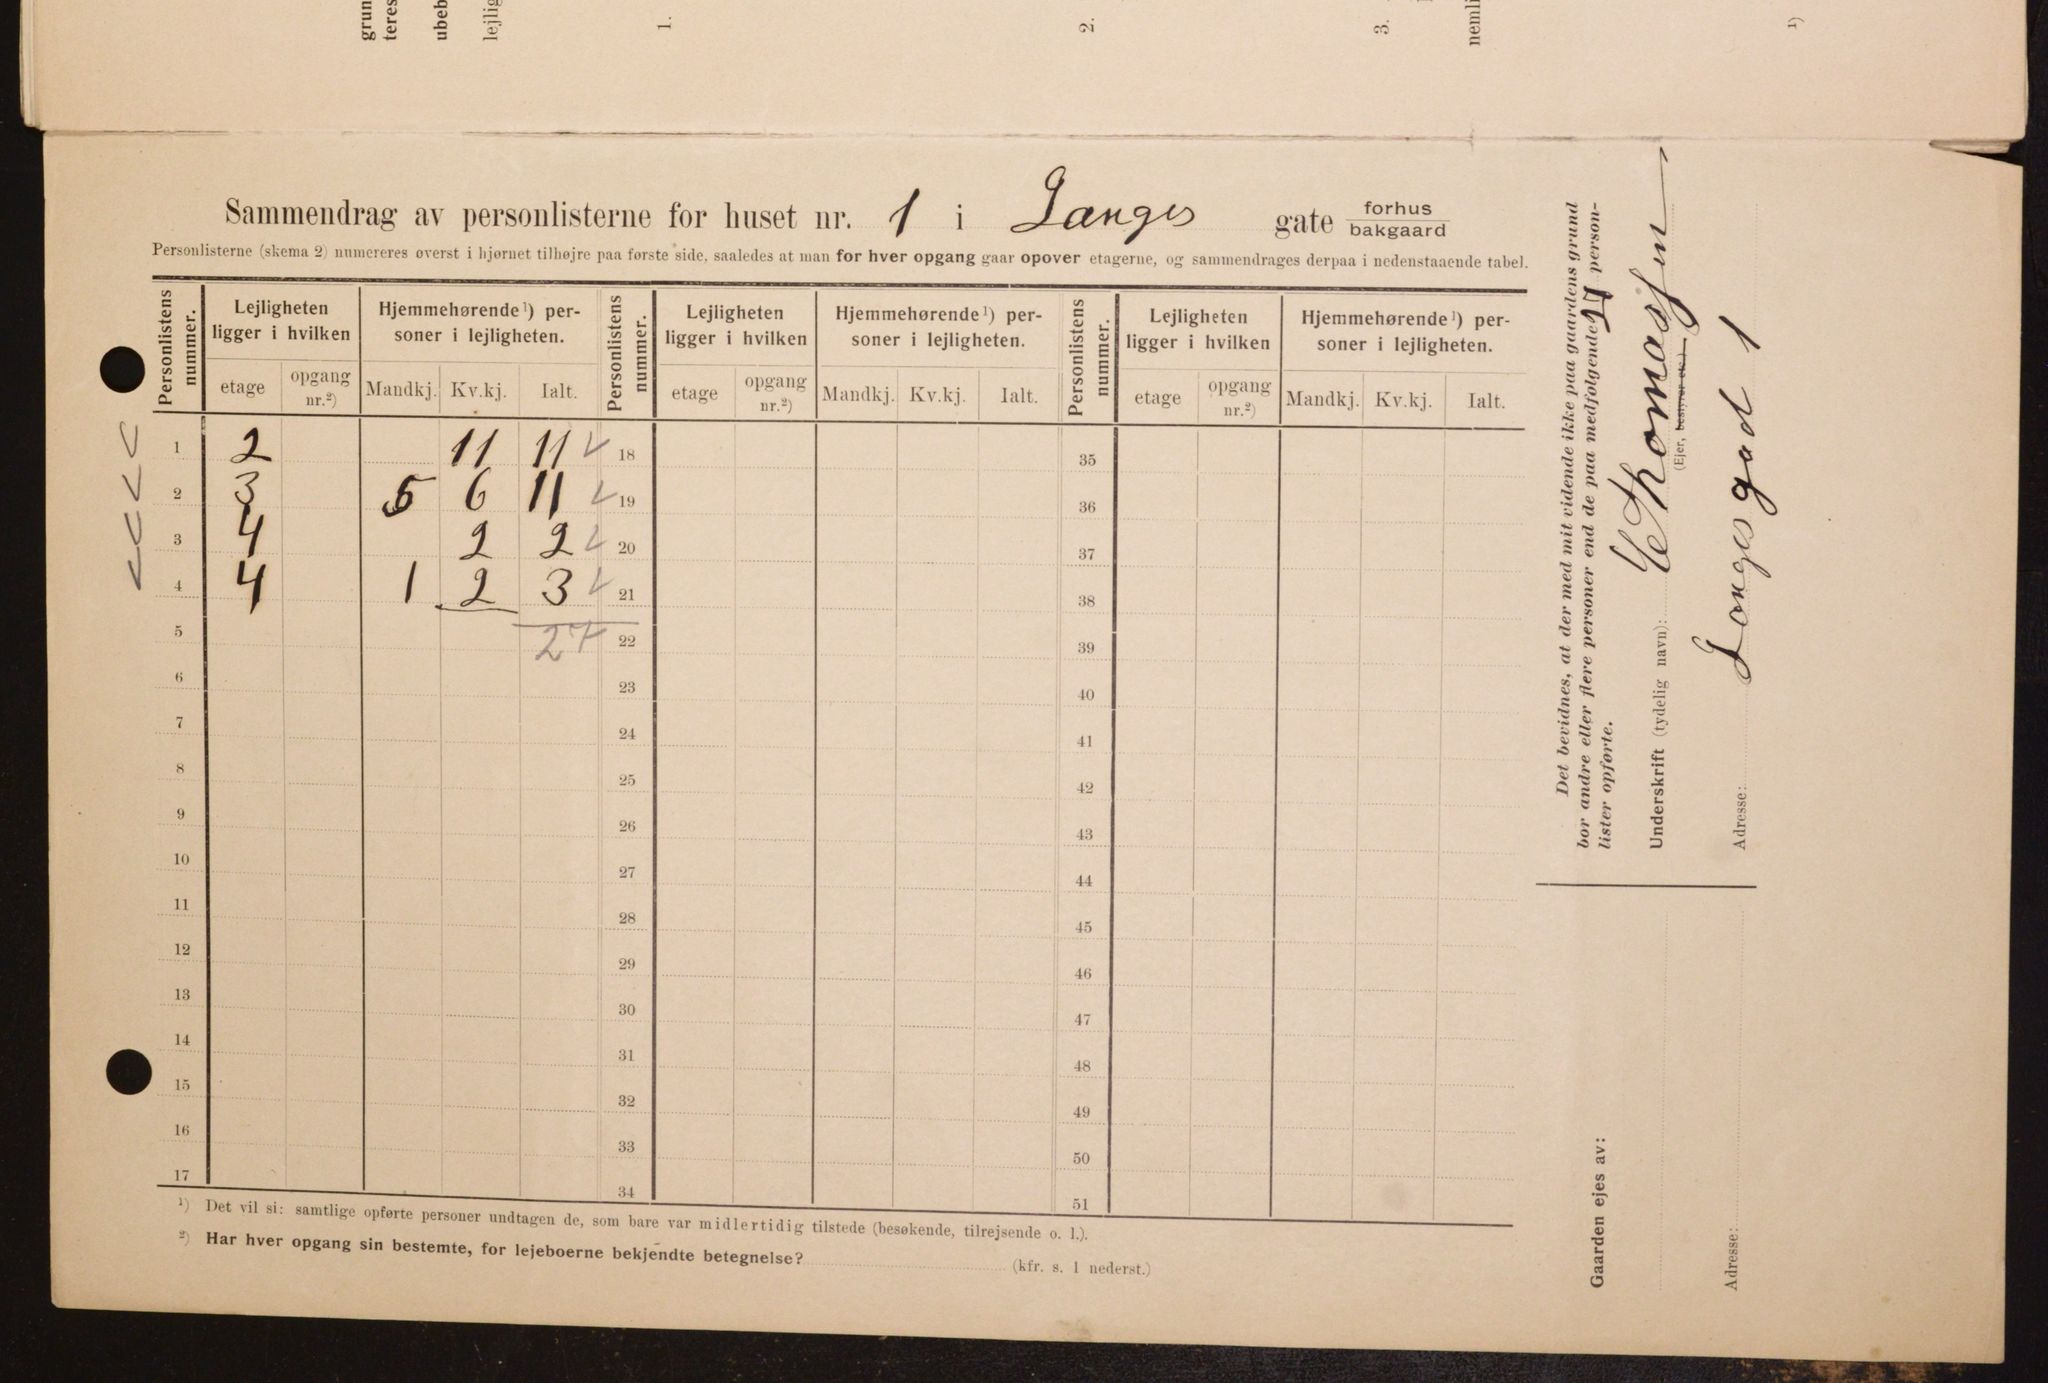 grun
teres
ubeb
lejlig
1.
2.
3.
nemli
¹)
Sammendrag av personlisterne for huset nr. 1 i Langes gate forhus
bakgaard
Personlisterne (skema 2) numereres øverst i hjørnet tilhøjre paa første side, saaledes at man for hver opgang gaar opover etagerne, og sammendrages derpaa i nedenstaaende tabel.
Personlistens nummer. Lejligheten ligger i hvilken Hjemmehørende¹) personer i lejligheten. Personlistens nummer. Lejligheten ligger i hvilken Hjemmehørende¹) personer i lejligheten. Personlistens nummer. Lejligheten ligger i hvilken Hjemmehørende¹) personer i lejligheten.
etage opgang nr.²) Mandkj. Kv.kj. Ialt. etage opgang nr.²) Mandkj. Kv.kj. Ialt. etage opgang nr.²) Mandkj. Kv.kj. Ialt.
1 2 11 11 18 35
2 3 5 6 11 19 36
3 4 2 2 20 37
4 4 1 2 3 21 38
5 27 22 39
6 23 40
7 24 41
8 25 42
9 26 43
10 27 44
11 28 45
12 29 46
13 30 47
14 31 48
15 32 49
16 33 50
17 34 51
¹) Det vil si: samtlige opførte personer undtagen de, som bare var midlertidig tilstede (besøkende, tilrejsende o. l.).
²) Har hver opgang sin bestemte, for lejeboerne bekjendte betegnelse?
(kfr. s. 1 nederst.)
Det bevidnes, at der med mit vidende ikke paa gaardens grund
bor andre eller flere personer end de paa medfølgende 4 person-
lister opførte.
Underskrift (tydelig navn): E Thomassen
(Ejer, bestyrer etc.)
Adresse: Langes gad 1
Gaarden ejes av:
Adresse: